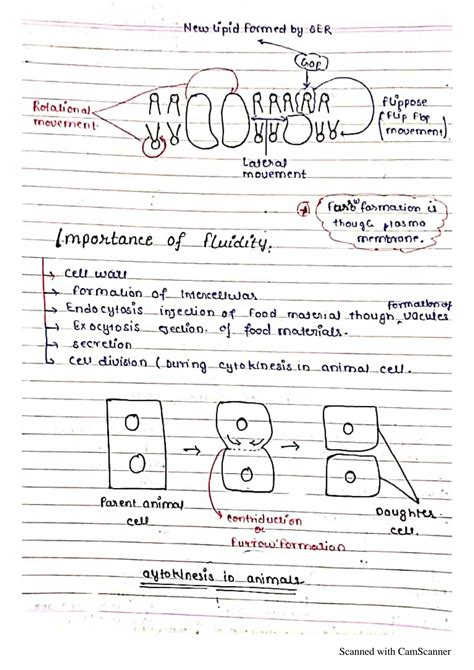 New lipid formed by SER
Gap
Rotational
movement
flippose
(flip flop
movement)
Lateral
movement
formation is
though plasma
membrane.
Importance of fluidity:
cell wall
formation of Intercellular
formation of
Endocytosis injection of food material though, vacules
Exocytosis ejection of food materials.
secretion
Cell division (During cytokinesis in animal cell.
Parent animal
cell
contriduction
or
Furrow formation
Daughter
cell.
cytokinesis in animals
Scanned with CamScanner